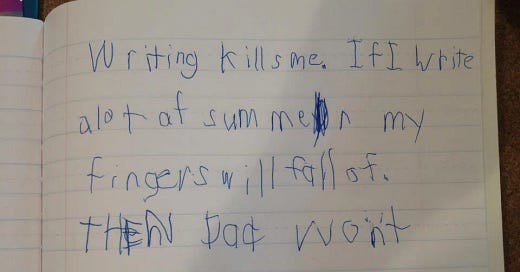 Writing kills me. If I write
alot at summer n my
fingers will fall of.
THEN Dad won't